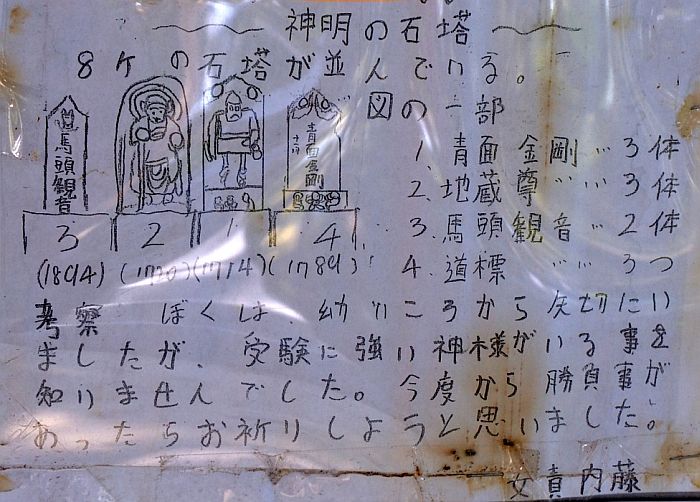 神明の石塔
8ケの石塔が並んでいる。
図の一部
馬頭観音
青面金剛
3 2 1 4
(1894) (1720) (1714) (1789)
1. 青面金剛 〃 3体
2. 地蔵尊 〃 3体
3. 馬頭観音 〃 2体
4. 道標 〃 3つ
考察 ぼくは、幼いころから矢切にい
ましたが、受験に強い神様がいる事を
知りませんでした。今度から勝負事が
あったらお祈りしようと思いました。
文責内藤